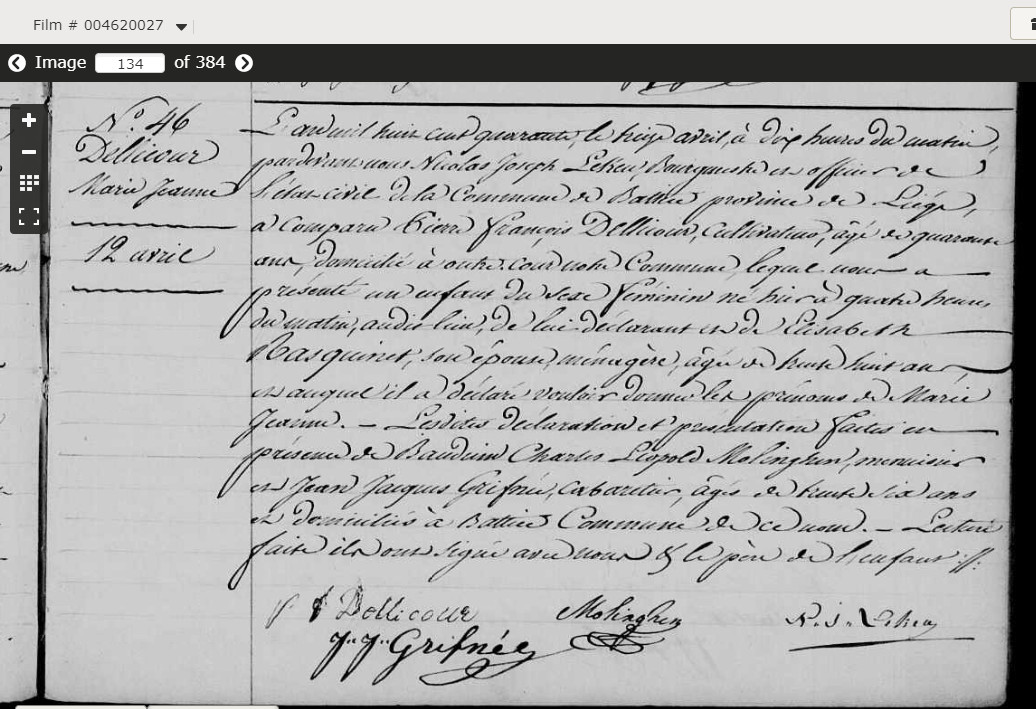 Film # 004620027
Image 134 of 384
N.º 46
Dellicour
Marie Jeanne
12 avril
L'an mil huit cent quarante, le treize avril, à dix heures du matin,
pardevant nous Nicolas Joseph Lekeu, Bourgmestre et officier de
l'état civil de la Commune de Battice province de Liége,
a comparu Pierre François Dellicour, Cultivateur, âgé de quarante
ans, domicilié à outre.cour notre Commune, lequel nous a
présenté un enfant du sexe féminin né hier à quatre heures
du matin, audit lieu, de lui déclarant et de Elisabeth
Rasquinet, son épouse, ménagère, âgée de trente huit ans
et auquel il a déclaré vouloir donner les prénoms de Marie
Jeanne. — Lesdites déclaration et présentation faites en
présence de Bauduin Charles Léopold Molinghen, menuisier
et Jean Jacques Grifnée, Cabaretier, âgés de trente six ans
et domiciliés à Battice Commune de ce nom. — Lecture
faite ils ont signé avec nous & le père de l'enfant
p f Dellicour
Molinghen
N. J. Lekeu
J. J. Grifnée